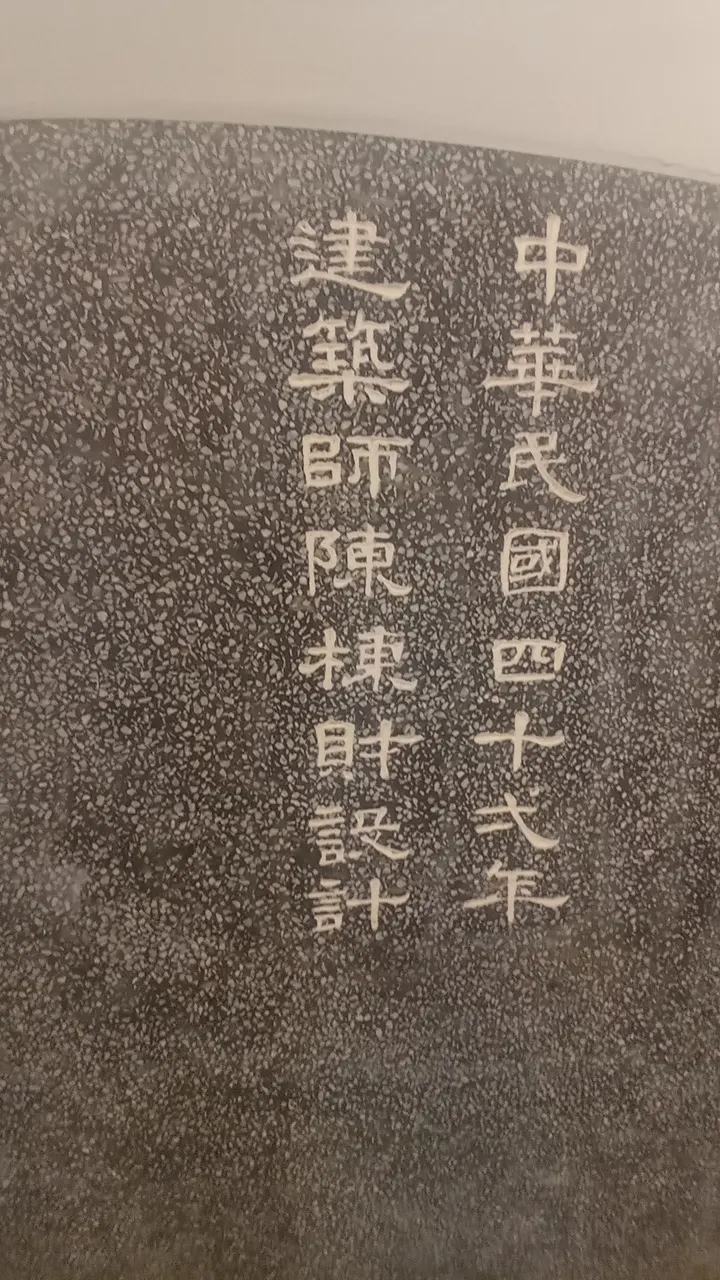 中華民國四十弍年
建築師陳棟財設計